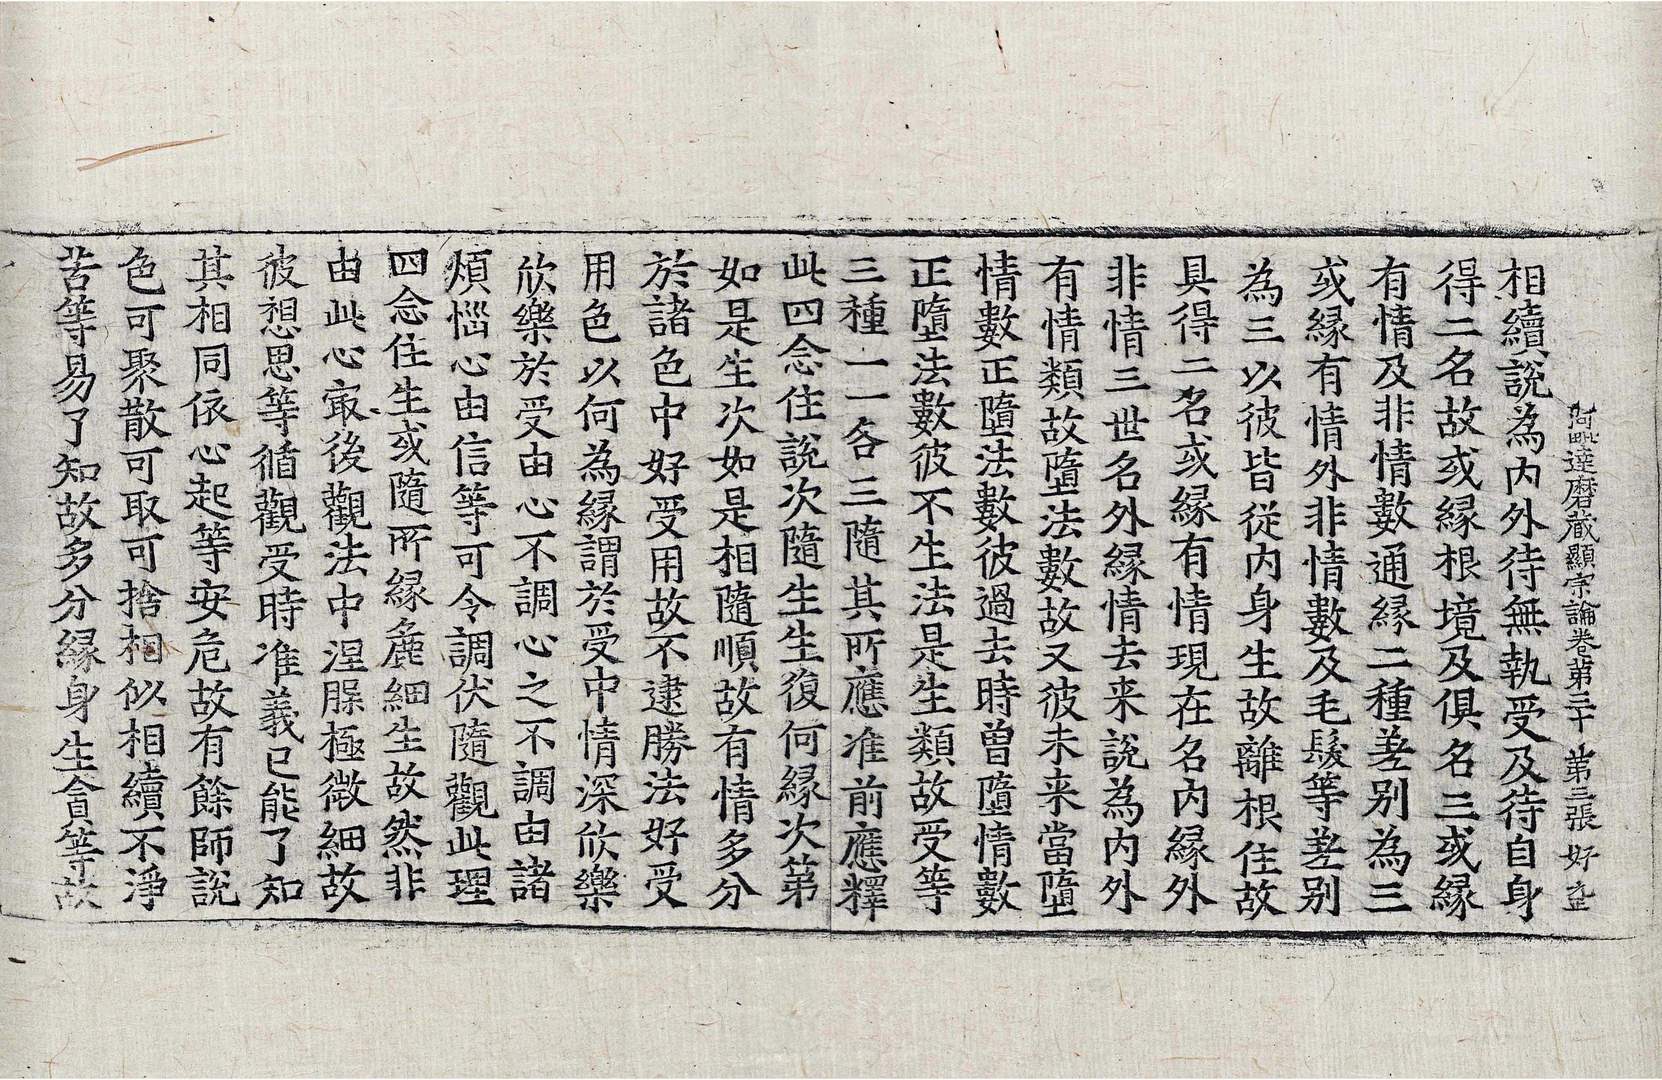 阿毗達磨藏顯宗論卷第三十 第三張 好
相續說為内外待無執受及待自身
得二名故或縁根境及俱名三或縁
有情及非情數通縁二種差别為三
或縁有情外非情數及毛髮等差别
為三以彼皆從内身生故離根住故
具得二名或縁有情現在名内縁外
非情三世名外縁情去来說為内外
有情類故墮法數故又彼未来當墮
情數正墮法數彼過去時曾墮情數
正墮法數彼不生法是生類故受等
三種一一各三隨其所應准前應釋
此四念住說次隨生生復何縁次第
如是生次如是相隨順故有情多分
於諸色中好受用故不逮勝法好受
用色以何為縁謂於受中情深欣樂
欣樂於受由心不調心之不調由諸
煩惱心由信等可令調伏隨觀此理
四念住生或隨所縁麁細生故然非
由此心㝡後觀法中涅脲極微細故
彼想思等循觀受時准義已能了知
其相同依心起等安危故有餘師說
色可聚散可取可捨相似相續不淨
苦等易了知故多分縁身生貪等故